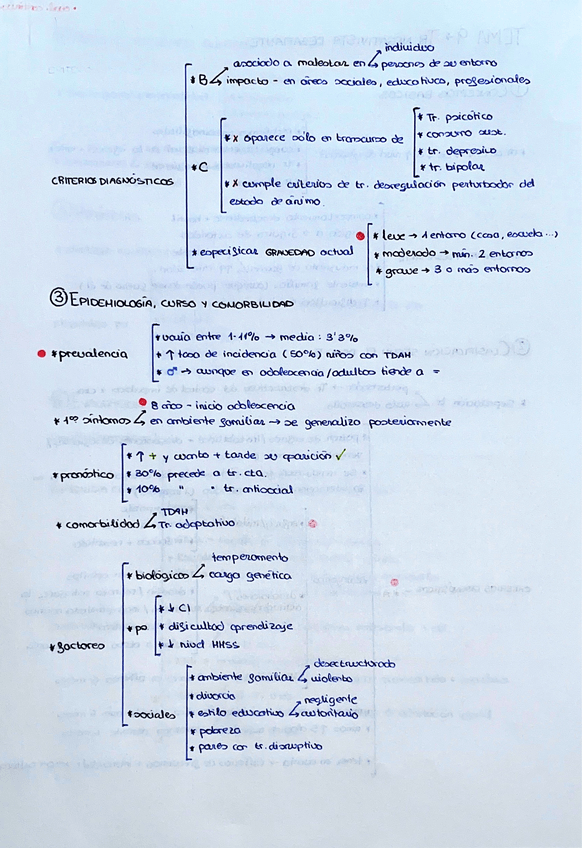 individuo
asociado a malestar en personas de su entorno
* B impacto - en áreas sociales, educativas, profesionales
* x aparece sólo en transcurso de
* Tr. psicótico
* consumo sust.
* tr. depresivo
* tr. bipolar
* C
CRITERIOS DIAGNÓSTICOS
* x cumple criterios de tr. desregulación perturbador del
estado de ánimo.
* especificar GRAVEDAD actual
* leve → 1 entorno (casa, escuela...)
* moderado → mín. 2 entornos
* grave → 3 o más entornos
③ EPIDEMIOLOGÍA, CURSO Y COMORBILIDAD
* prevalencia
* varía entre 1-11% → media: 3'3%
* ↑ tasa de incidencia (50%) niños con TDAH
* ♂ → aunque en adolescencia/adultos tiende a =
8 años - inicio adolescencia
* 1os síntomas en ambiente familiar → se generaliza posteriormente
* pronóstico
* ↑ + y cuanto + tarde su aparición ✓
* 30% precede a tr. cta.
* 10% " " tr. antisocial
* comorbilidad
TDAH
Tr. adaptativo
* factores
* biológicos
temperamento
carga genética
* ps
* ↓ CI
* dificultad aprendizaje
* ↓ nivel HHSS
* sociales
* ambiente familiar
desestructurado
violento
* divorcio
* estilo educativo
negligente
autoritario
* pobreza
* pares con tr. disruptivo